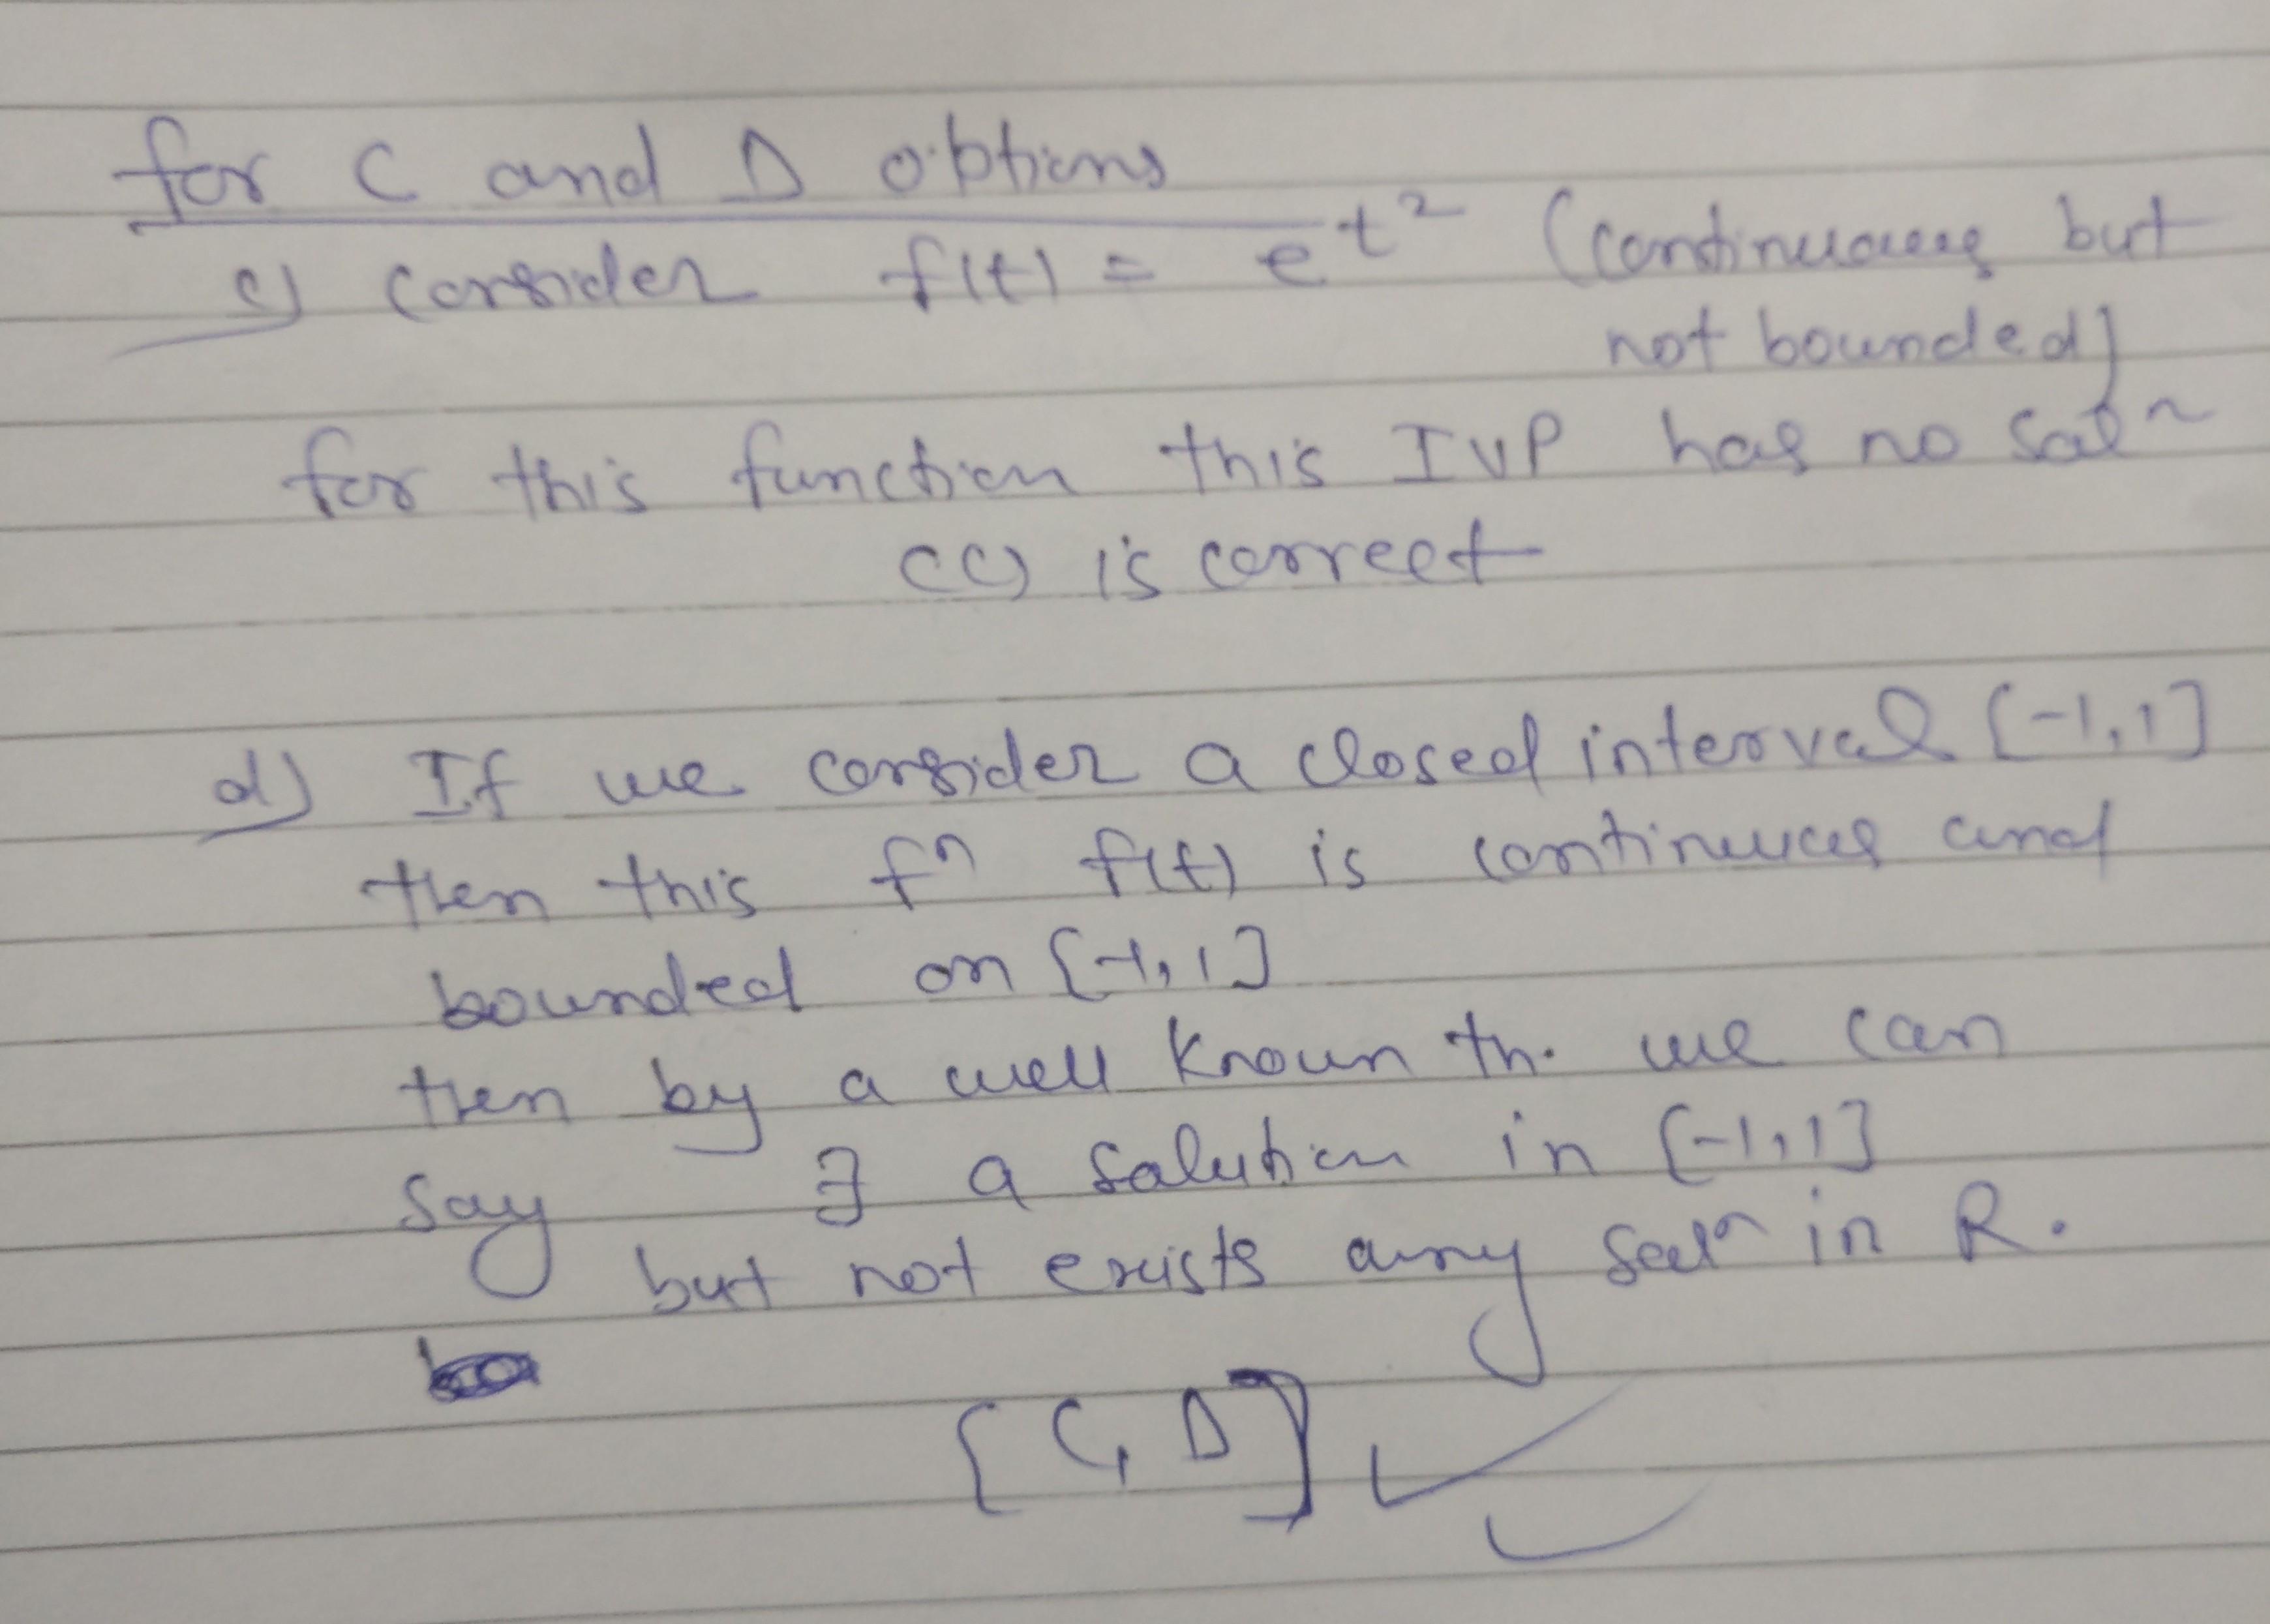 for C and D options
c) consider f(t) = e^t² (continuous but
not bounded)
for this function this IVP has no solⁿ
(C) is correct
d) If we consider a closed interval [-1,1]
then this fⁿ f(t) is continuous and
bounded on [-1,1]
then by a well known th. we can
say ∃ a solution in [-1,1]
but not exists any solⁿ in R.
[C, D]